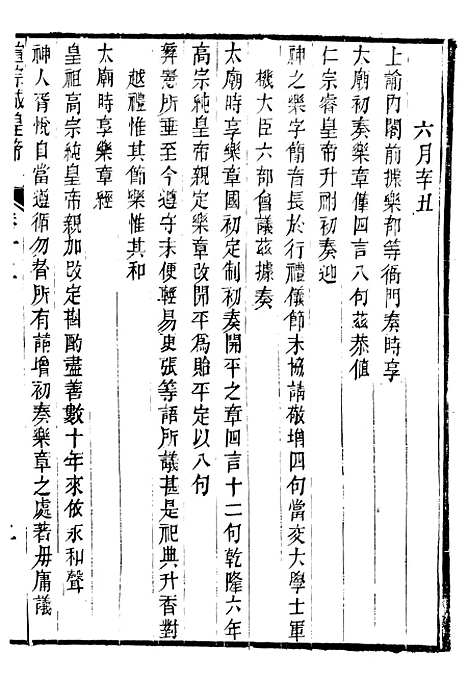 六月辛丑
上諭內閣前據樂部等衙門奏時享
太廟初奏樂章僅四言八句茲恭值
仁宗睿皇帝升祔初奏迎
神之樂字簡音長於行禮儀節未協請敬增四句當交大學士軍
機大臣六部會議茲據奏
太廟時享樂章國初定制初奏開平之章四言十二句乾隆六年
高宗純皇帝親定樂章改開平為貽平定以八句
彝憲所垂至今遵守未便輕易更張等語所議甚是祀典升香對
越禮惟其節樂惟其和
太廟時享樂章經
皇祖高宗純皇帝親加改定斟酌盡善數十年來依永和聲
神人胥悅自當遵循勿替所有請增初奏樂章之處著毋庸議
宣宗成皇帝
卷十二
九